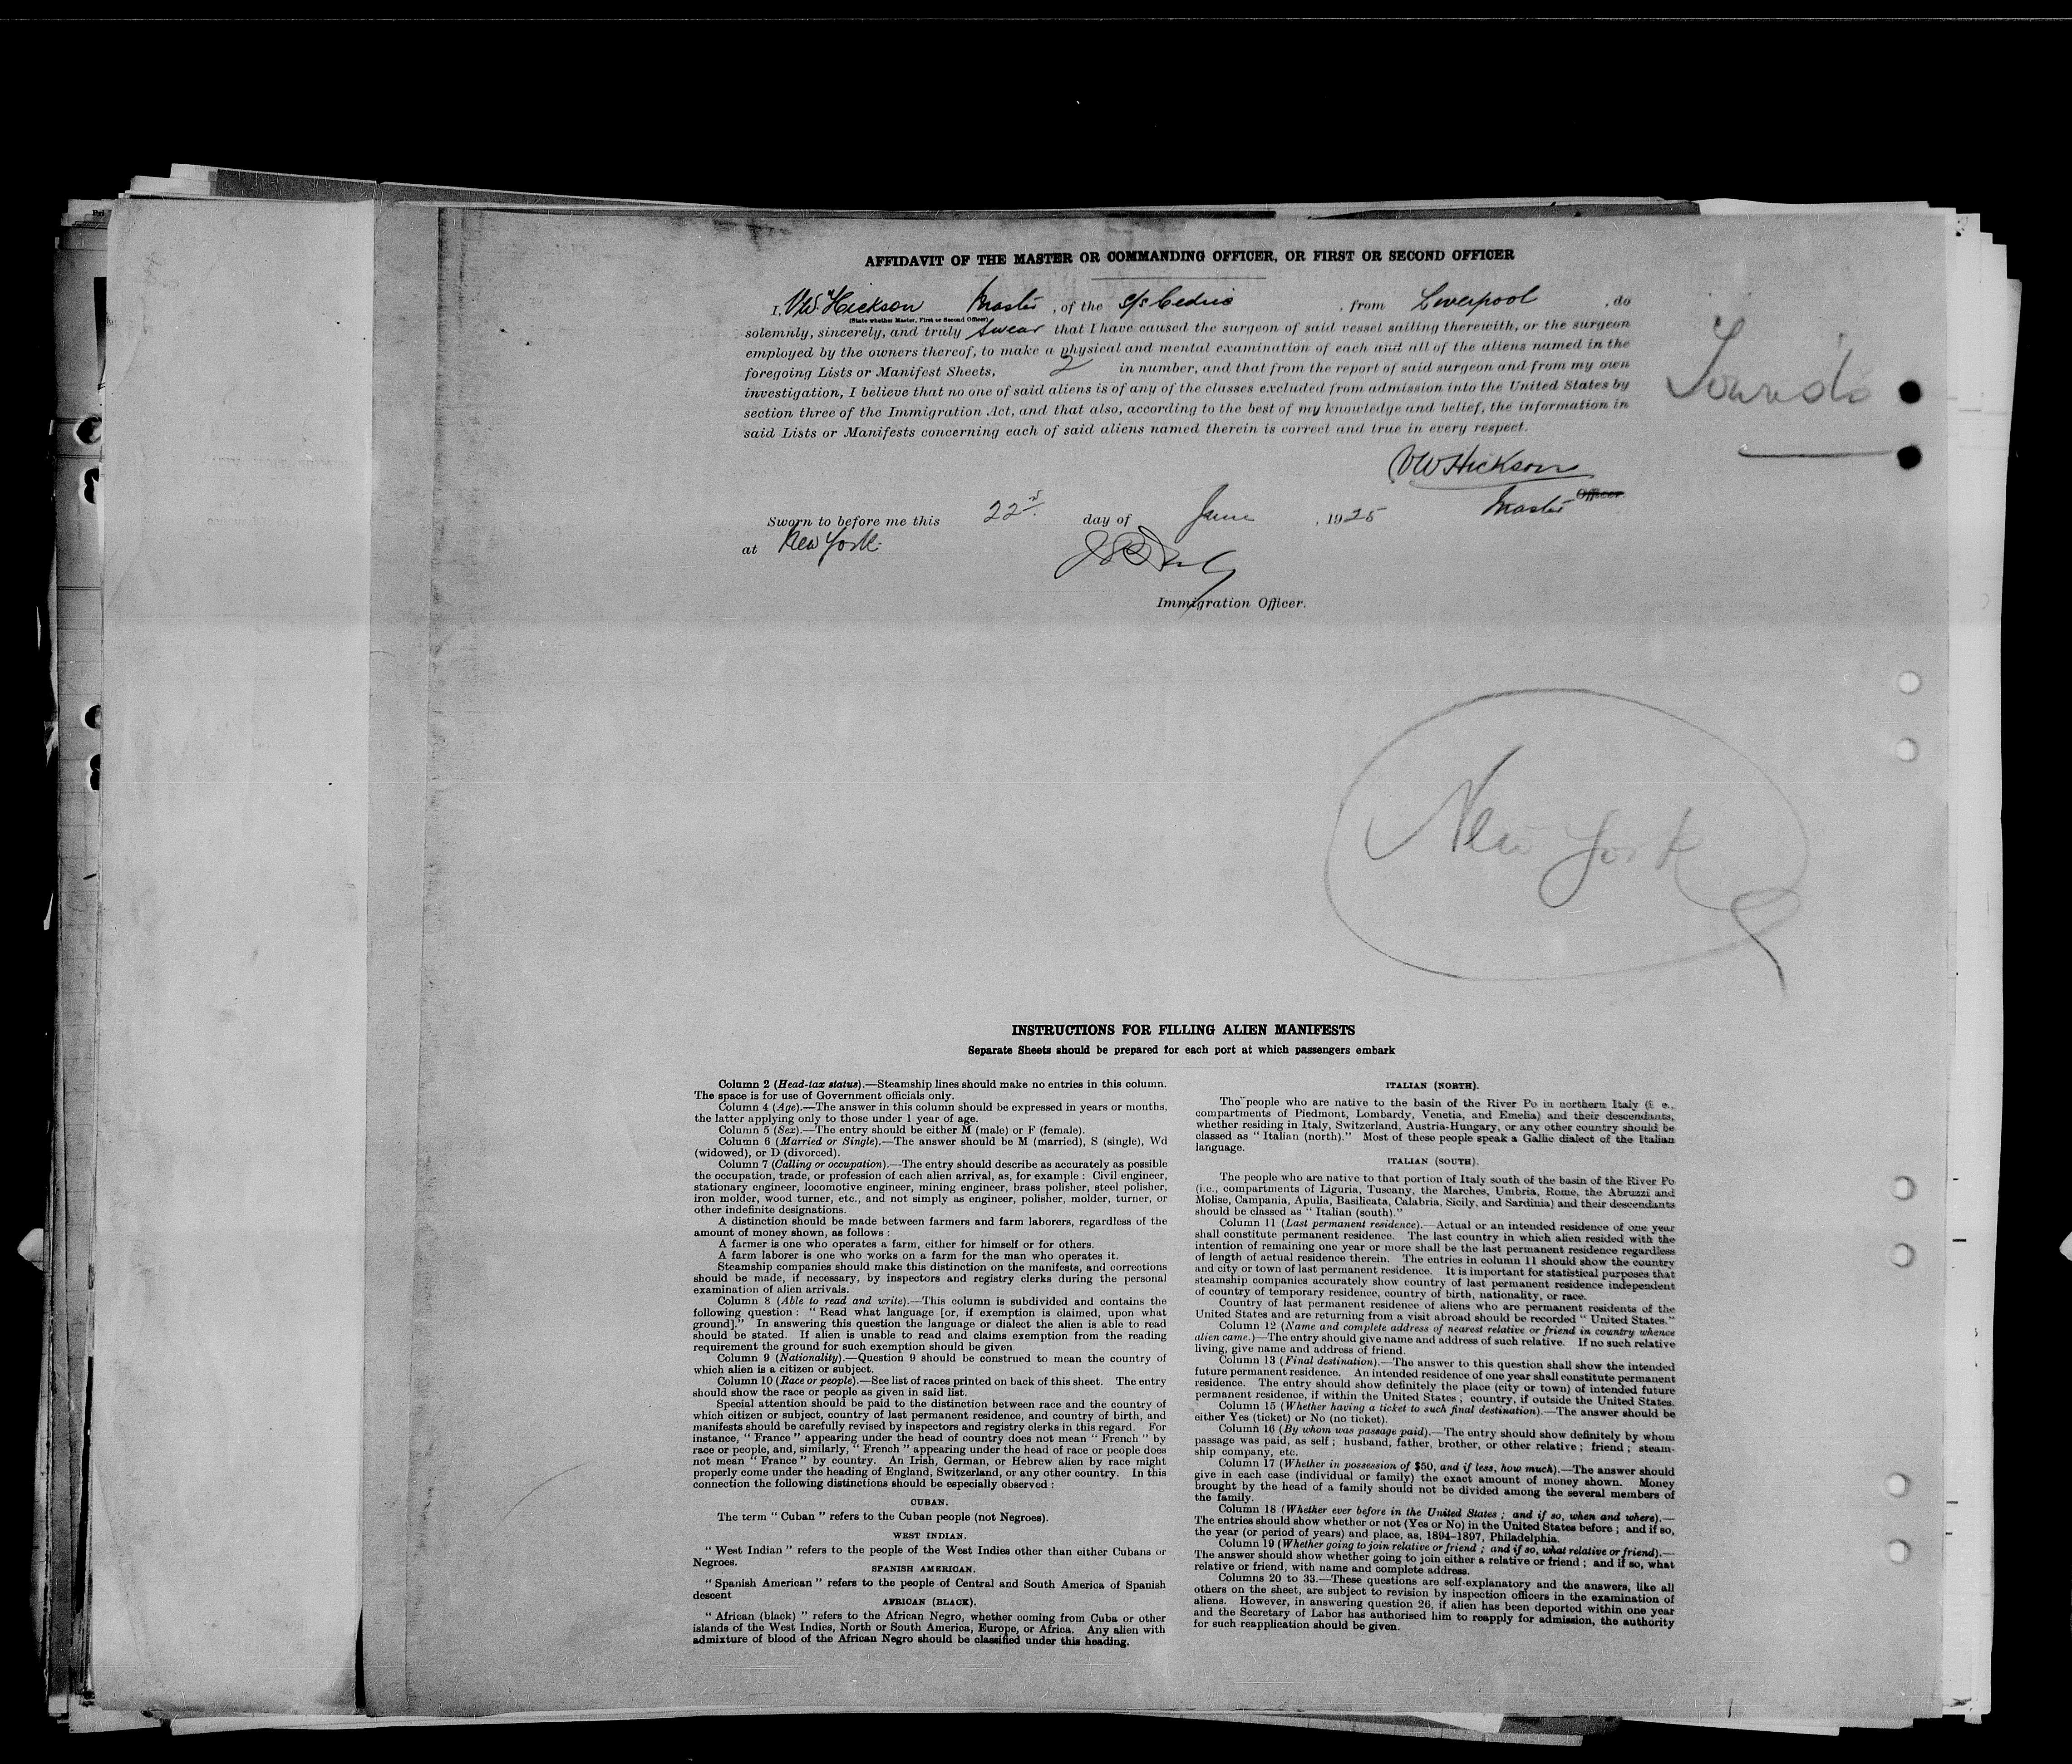 AFFIDAVIT OF THE MASTER OR COMMANDING OFFICER, OR FIRST OR SECOND OFFICER
I, VW Hickson Master, of the S/S Cedric, from Liverpool, do
(State whether Master, First or Second Officer)
solemnly, sincerely, and truly swear that I have caused the surgeon of said vessel sailing therewith, or the surgeon
employed by the owners thereof, to make a physical and mental examination of each and all of the aliens named in the
foregoing Lists or Manifest Sheets, 2 in number, and that from the report of said surgeon and from my own
investigation, I believe that no one of said aliens is of any of the classes excluded from admission into the United States by
section three of the Immigration Act, and that also, according to the best of my knowledge and belief, the information in
said Lists or Manifests concerning each of said aliens named therein is correct and true in every respect.
VW Hickson
Master Officer.
Sworn to before me this 22nd day of June, 1925
at New York
Immigration Officer.
New York
INSTRUCTIONS FOR FILLING ALIEN MANIFESTS
Separate Sheets should be prepared for each port at which passengers embark
Column 2 (Head-tax status).—Steamship lines should make no entries in this column.
The space is for use of Government officials only.
Column 4 (Age).—The answer in this column should be expressed in years or months,
the latter applying only to those under 1 year of age.
Column 5 (Sex).—The entry should be either M (male) or F (female).
Column 6 (Married or Single).—The answer should be M (married), S (single), Wd
(widowed), or D (divorced).
Column 7 (Calling or occupation).—The entry should describe as accurately as possible
the occupation, trade, or profession of each alien arrival, as, for example : Civil engineer,
stationary engineer, locomotive engineer, mining engineer, brass polisher, steel polisher,
iron molder, wood turner, etc., and not simply as engineer, polisher, molder, turner, or
other indefinite designations.
A distinction should be made between farmers and farm laborers, regardless of the
amount of money shown, as follows :
A farmer is one who operates a farm, either for himself or for others.
A farm laborer is one who works on a farm for the man who operates it.
Steamship companies should make this distinction on the manifests, and corrections
should be made, if necessary, by inspectors and registry clerks during the personal
examination of alien arrivals.
Column 8 (Able to read and write).—This column is subdivided and contains the
following question : " Read what language [or, if exemption is claimed, upon what
ground]." In answering this question the language or dialect the alien is able to read
should be stated. If alien is unable to read and claims exemption from the reading
requirement the ground for such exemption should be given.
Column 9 (Nationality).—Question 9 should be construed to mean the country of
which alien is a citizen or subject.
Column 10 (Race or people).—See list of races printed on back of this sheet. The entry
should show the race or people as given in said list.
Special attention should be paid to the distinction between race and the country of
which citizen or subject, country of last permanent residence, and country of birth, and
manifests should be carefully revised by inspectors and registry clerks in this regard. For
instance, " France " appearing under the head of country does not mean " French " by
race or people, and, similarly, " French " appearing under the head of race or people does
not mean " France " by country. An Irish, German, or Hebrew alien by race might
properly come under the heading of England, Switzerland, or any other country. In this
connection the following distinctions should be especially observed :
CUBAN.
The term " Cuban " refers to the Cuban people (not Negroes).
WEST INDIAN.
" West Indian " refers to the people of the West Indies other than either Cubans or
Negroes.
SPANISH AMERICAN.
" Spanish American " refers to the people of Central and South America of Spanish
descent
AFRICAN (BLACK).
" African (black) " refers to the African Negro, whether coming from Cuba or other
islands of the West Indies, North or South America, Europe, or Africa. Any alien with
admixture of blood of the African Negro should be classified under this heading.
ITALIAN (NORTH).
The people who are native to the basin of the River Po in northern Italy (i. e.,
compartments of Piedmont, Lombardy, Venetia, and Emelia) and their descendants,
whether residing in Italy, Switzerland, Austria-Hungary, or any other country should be
classed as " Italian (north)." Most of these people speak a Gallic dialect of the Italian
language.
ITALIAN (SOUTH).
The people who are native to that portion of Italy south of the basin of the River Po
(i.e., compartments of Liguria, Tuscany, the Marches, Umbria, Rome, the Abruzzi and
Molise, Campania, Apulia, Basilicata, Calabria, Sicily, and Sardinia) and their descendants
should be classed as " Italian (south)."
Column 11 (Last permanent residence).—Actual or an intended residence of one year
shall constitute permanent residence. The last country in which alien resided with the
intention of remaining one year or more shall be the last permanent residence regardless
of length of actual residence therein. The entries in column 11 should show the country
and city or town of last permanent residence. It is important for statistical purposes that
steamship companies accurately show country of last permanent residence independent
of country of temporary residence, country of birth, nationality, or race.
Country of last permanent residence of aliens who are permanent residents of the
United States and are returning from a visit abroad should be recorded " United States."
Column 12 (Name and complete address of nearest relative or friend in country whence
alien came.)—The entry should give name and address of such relative. If no such relative
living, give name and address of friend.
Column 13 (Final destination).—The answer to this question shall show the intended
future permanent residence. An intended residence of one year shall constitute permanent
residence. The entry should show definitely the place (city or town) of intended future
permanent residence, if within the United States ; country, if outside the United States.
Column 15 (Whether having a ticket to such final destination).—The answer should be
either Yes (ticket) or No (no ticket).
Column 16 (By whom was passage paid).—The entry should show definitely by whom
passage was paid, as self ; husband, father, brother, or other relative ; friend ; steam-
ship company, etc.
Column 17 (Whether in possession of $50, and if less, how much).—The answer should
give in each case (individual or family) the exact amount of money shown. Money
brought by the head of a family should not be divided among the several members of
the family.
Column 18 (Whether ever before in the United States ; and if so, when and where).—
The entries should show whether or not (Yes or No) in the United States before ; and if so,
the year (or period of years) and place, as, 1894-1897, Philadelphia.
Column 19 (Whether going to join relative or friend ; and if so, what relative or friend).—
The answer should show whether going to join either a relative or friend ; and if so, what
relative or friend, with name and complete address.
Columns 20 to 33.—These questions are self-explanatory and the answers, like all
others on the sheet, are subject to revision by inspection officers in the examination of
aliens. However, in answering question 26, if alien has been deported within one year
and the Secretary of Labor has authorised him to reapply for admission, the authority
for such reapplication should be given.